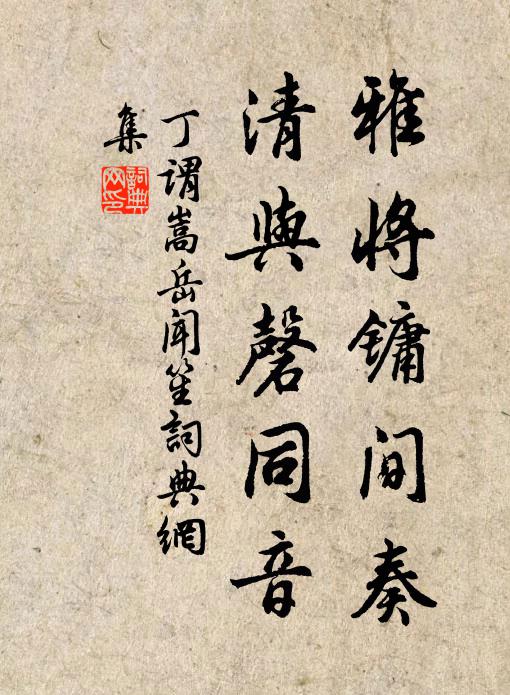 雅將鏞間奏
清與磬同音
丁謂嵩岳聞笙詞典網
集
詞典網印